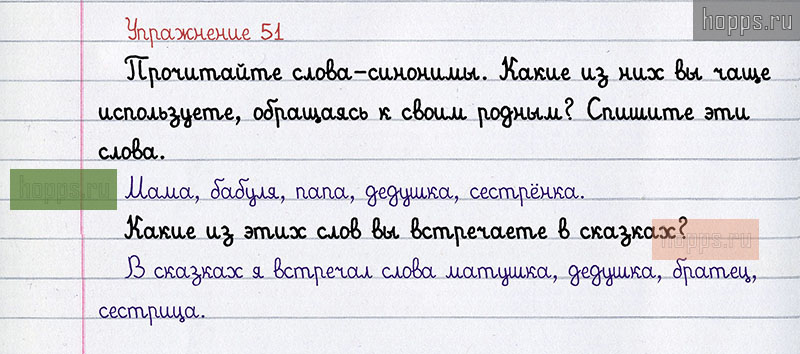 hopps.ru
Упражнение 51
Прочитайте слова-синонимы. Какие из них вы чаще
используете, обращаясь к своим родным? Спишите эти
слова.
hopps.ru Мама, бабуля, папа, дедушка, сестрёнка.
Какие из этих слов вы встречаете в сказках?
hopps.ru
В сказках я встречал слова матушка, дедушка, братец,
сестрица.